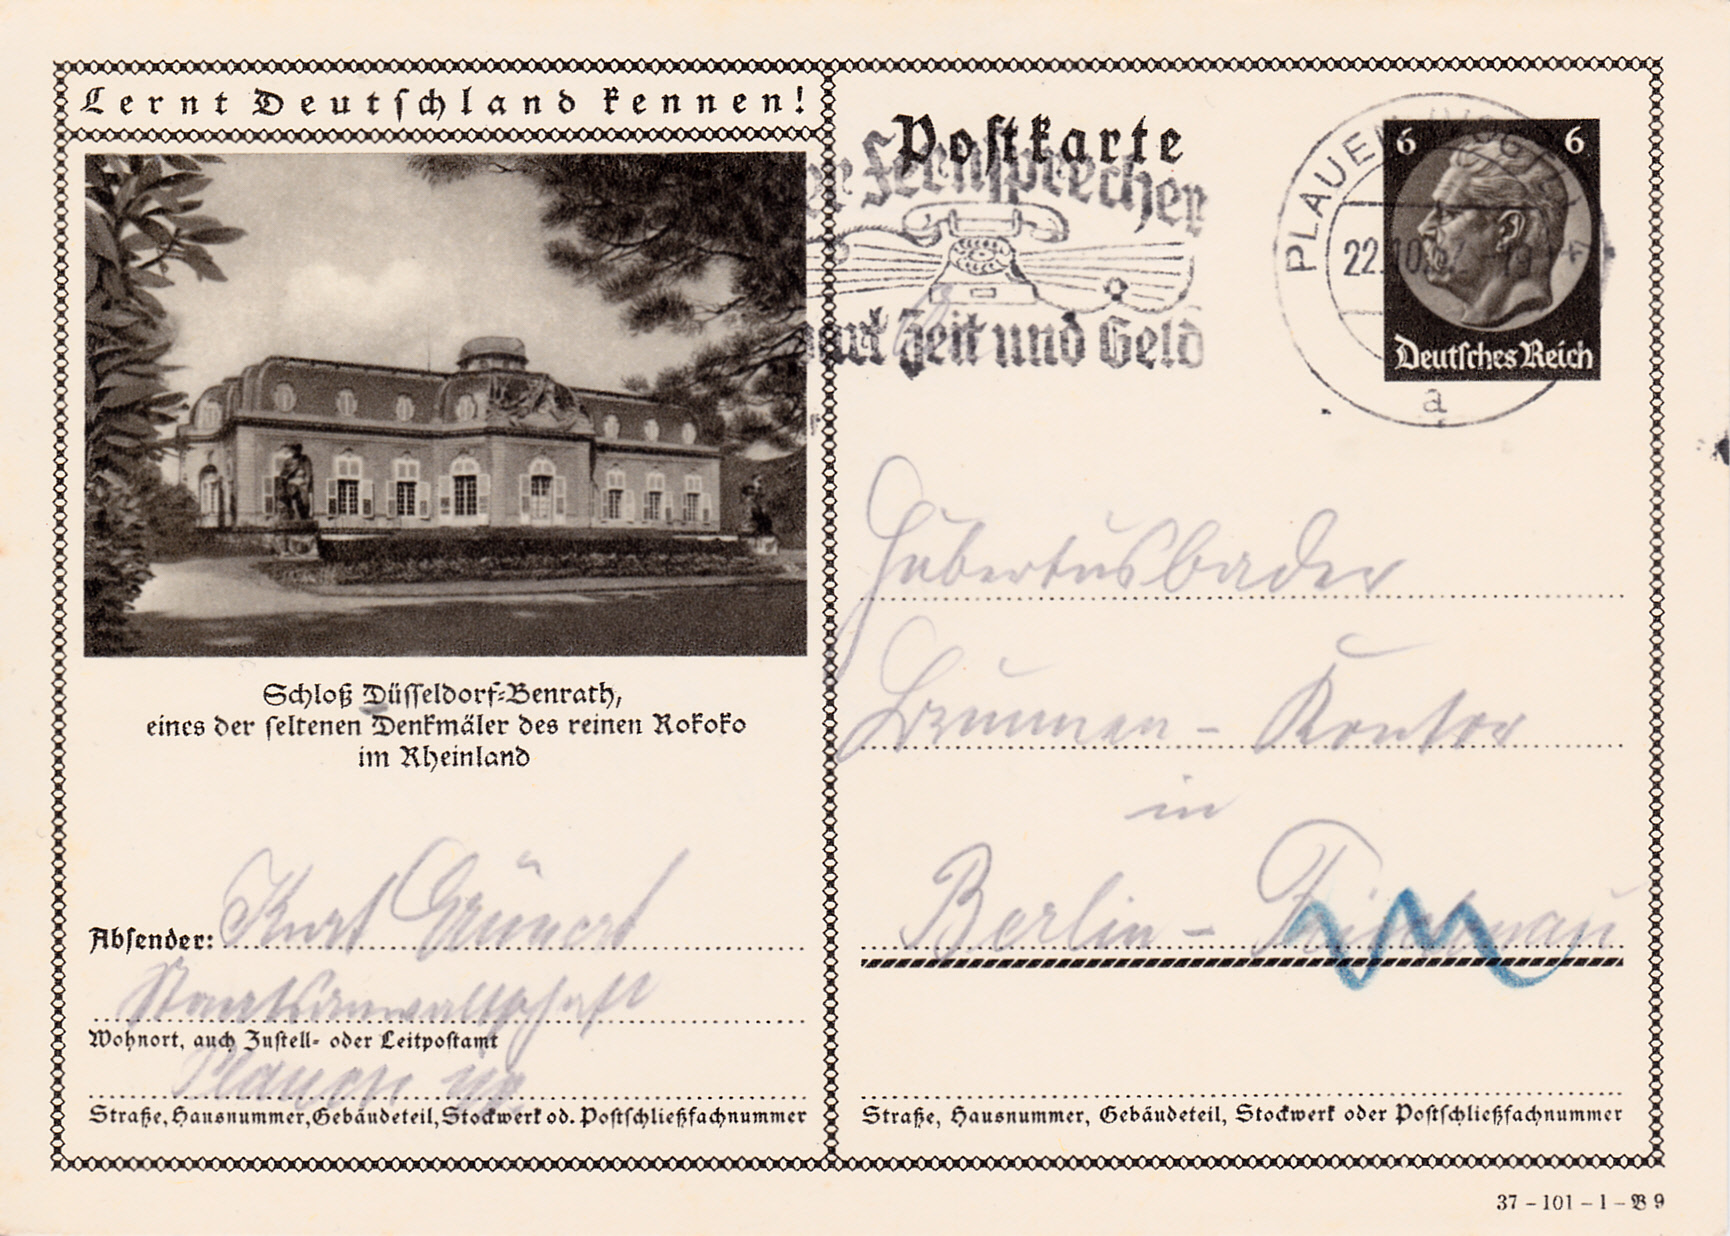 Lernt Deutschland kennen!
Postkarte
Fernsprecher
Zeit und Geld
PLAUEN (VOGTL)
22.10.
a
6 6
Deutsches Reich
Schloß Düsseldorf-Benrath,
eines der seltenen Denkmäler des reinen Rokoko
im Rheinland
Hubertusbader
Brunnen - Kontor
in
Berlin - Friedenau
Absender: Kurt Grünert
Staatsanwaltschaft
Wohnort, auch Zustell- oder Leitpostamt
Plauen
Straße, Hausnummer, Gebäudeteil, Stockwerk od. Postschließfachnummer
Straße, Hausnummer, Gebäudeteil, Stockwerk oder Postschließfachnummer
37 - 101 - 1 - B 9